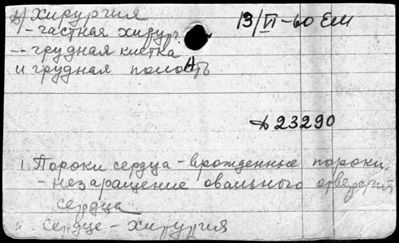 2) Хирургия 13/VI-60 ЕМ
- частная хирург.
-- грудная клетка
и грудная полость
Д 23290
1. Пороки сердца - врожденные пороки.
- незаращение овального отверстия
сердца
" Сердце - хирургия